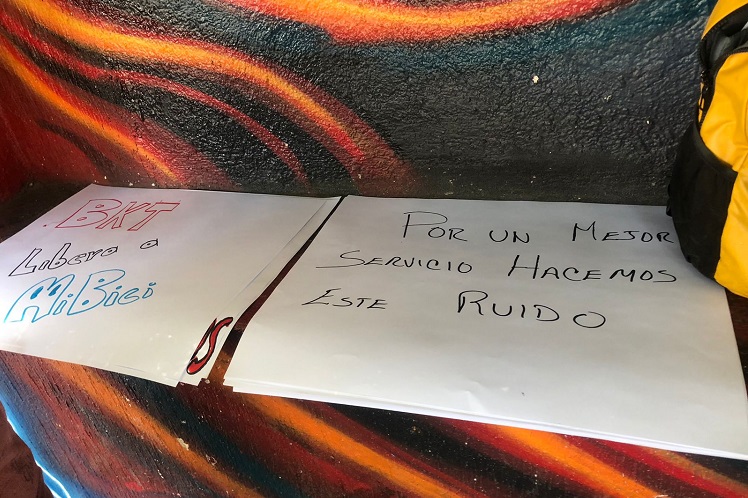 .BKT
Libera a
MiBici
S
POR UN MEJOR
SERVICIO HACEMOS
ESTE RUIDO